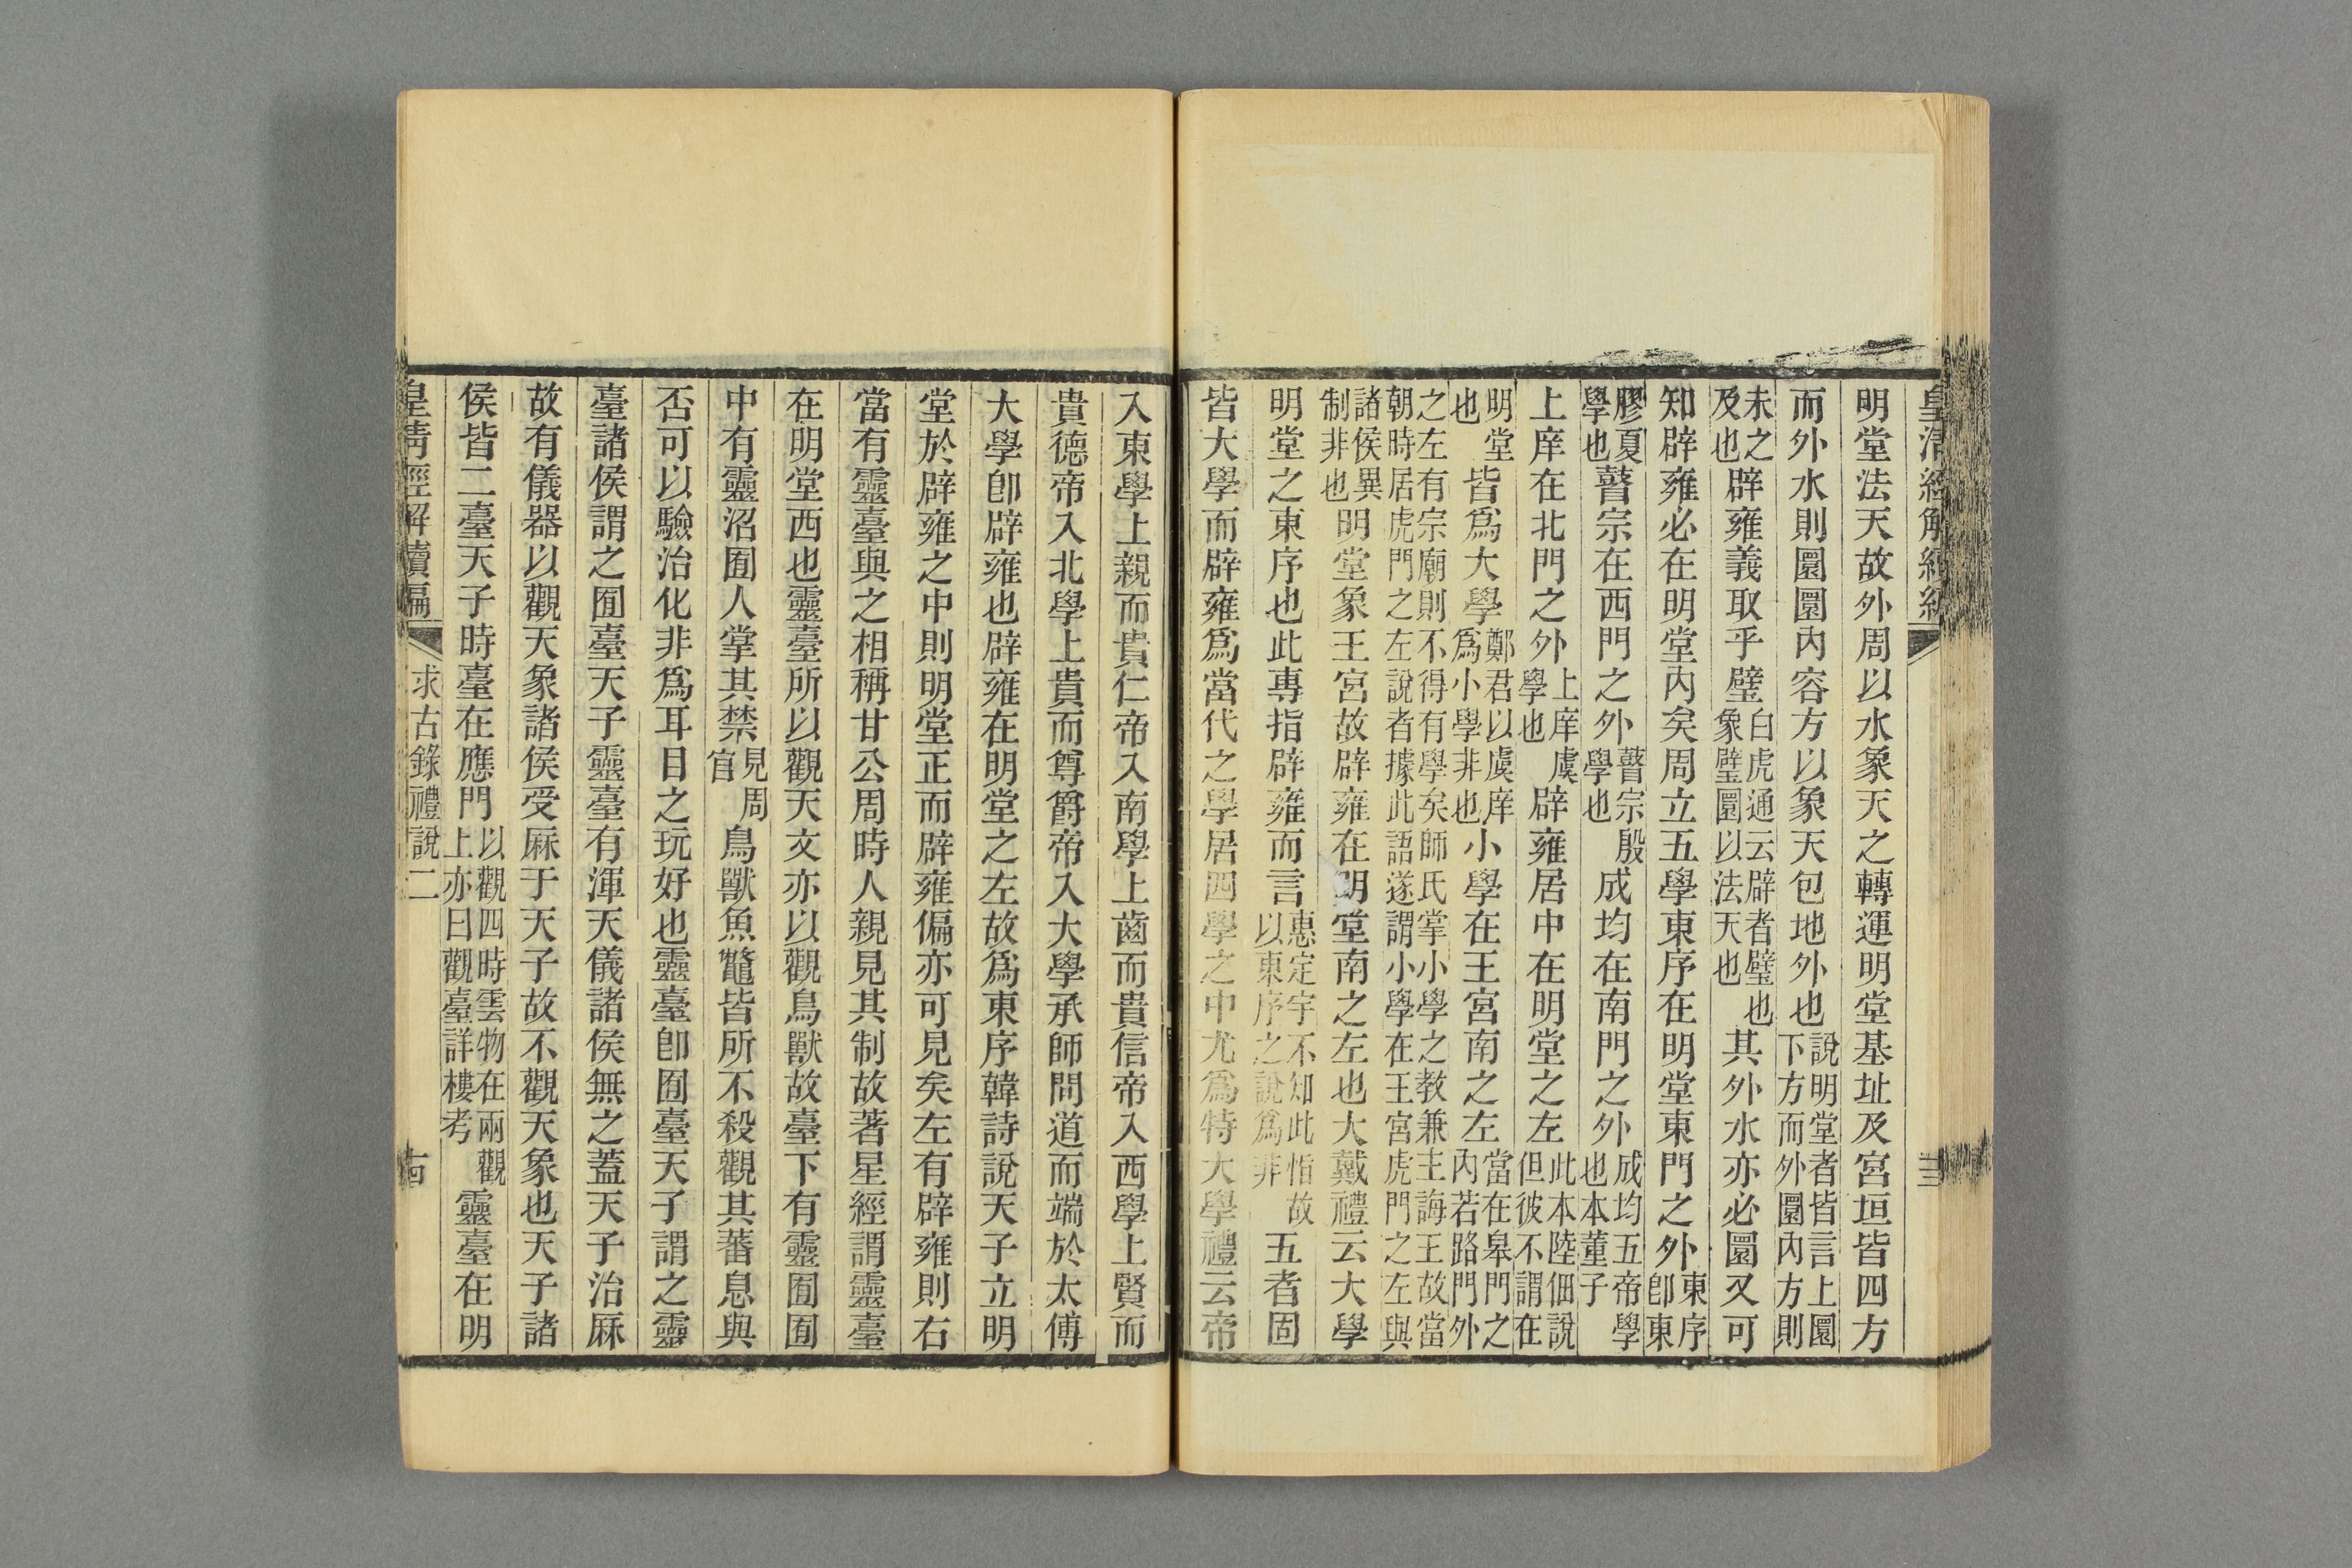 明堂法天故外周以水象天之轉運明堂基址及宮垣皆四方
而外水則圜圜內容方以象天包地外也說明堂者皆言上圜下方而外圜內方則
未之及也辟雍義取乎璧白虎通云辟者璧也象璧圜以法天也其外水亦必圜又可
知辟雍必在明堂內矣周立五學東序在明堂東門之外東序卽東
膠夏學也瞽宗在西門之外瞽宗殷學也成均在南門之外成均五帝學也本董子
上庠在北門之外上庠虞學也辟雍居中在明堂之左此本陸佃說但彼不謂在
明堂也皆爲大學鄭君以虞庠爲小學非也小學在王宮南之左當在皋門之內若路門外
之左有宗廟則不得有學矣師氏掌小學之教兼主誨王故當朝時居虎門之左說者據此語遂謂小學在王宮虎門之左與
諸侯異制非也明堂象王宮故辟雍在明堂南之左也大戴禮云大學
明堂之東序也此專指辟雍而言惠定宇不知此恉故以東序之說爲非五者固
皆大學而辟雍爲當代之學居四學之中尤爲特大學禮云帝
入東學上親而貴仁帝入南學上齒而貴信帝入西學上賢而
貴德帝入北學上貴而尊爵帝入大學承師問道而端於太傅
大學卽辟雍也辟雍在明堂之左故爲東序韓詩說天子立明
堂於辟雍之中則明堂正而辟雍偏亦可見矣左有辟雍則右
當有靈臺與之相稱甘公周時人親見其制故著星經謂靈臺
在明堂西也靈臺所以觀天文亦以觀鳥獸故臺下有靈囿囿
中有靈沼囿人掌其禁見周官鳥獸魚鼈皆所不殺觀其蕃息與
否可以驗治化非爲耳目之玩好也靈臺卽囿臺天子謂之靈
臺諸侯謂之囿臺天子靈臺有渾天儀諸侯無之蓋天子治厤
故有儀器以觀天象諸侯受厤于天子故不觀天象也天子諸
侯皆二臺天子時臺在應門以觀四時雲物在兩觀上亦曰觀臺詳樓考靈臺在明
皇清經解續編
求古錄禮說二